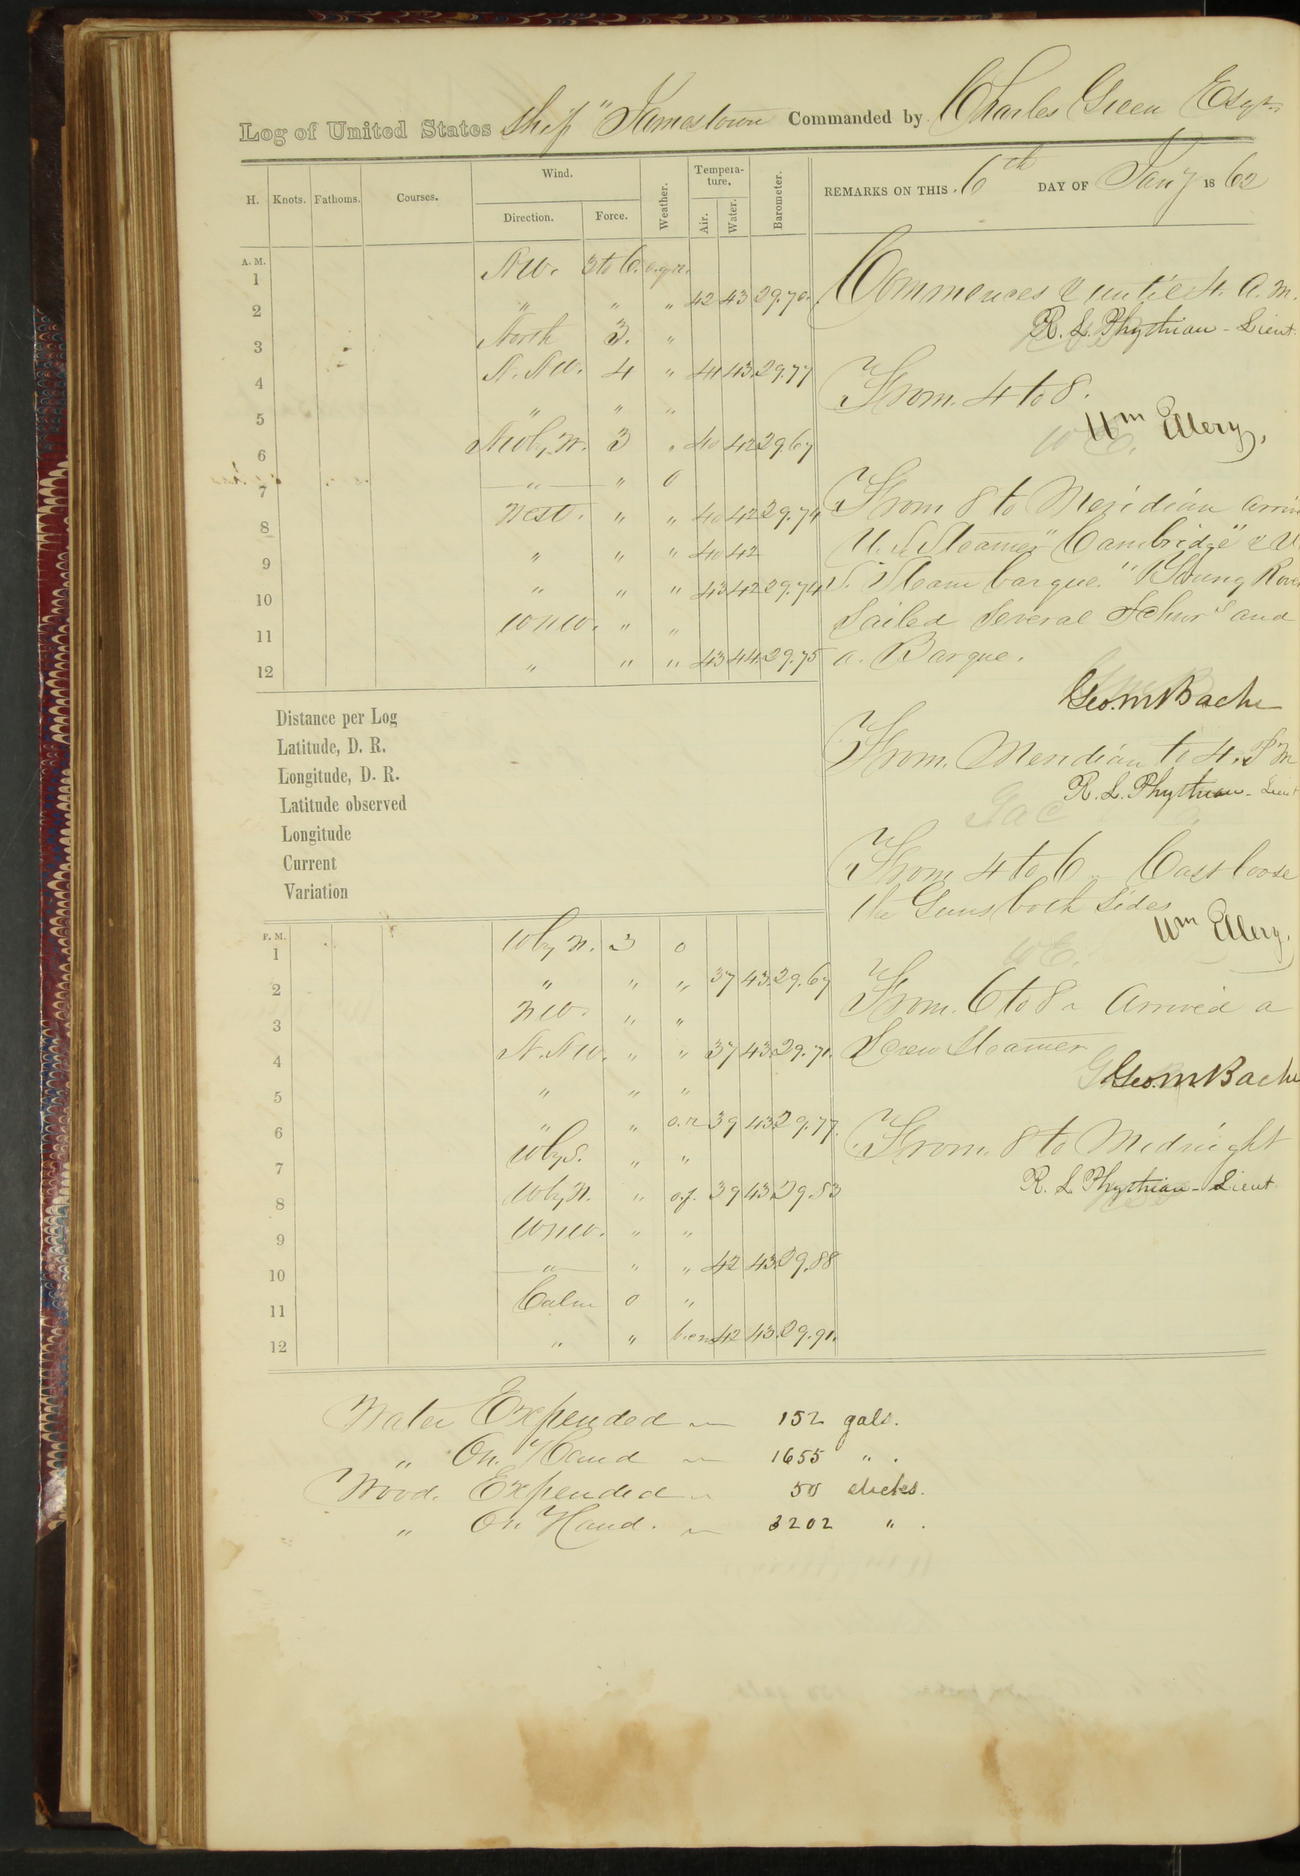 Log of United States Ship "Jamestown Commanded by Charles Green Esqr.
H. Knots. Fathoms. Courses. Wind. Direction. Force. Weather. Tempera-ture. Air. Water. Barometer. REMARKS ON THIS 6th DAY OF Jany 1862
A. M.
1 NW. 3 to 6. o.q.r.
2 " " " 42 43 29.70.
3 North 3. "
4 N. NW. 4 " 41 43 29.77
5 " " "
6 NW by W. 3 " 40 42 29.67
7 " " o
8 West. " " 40 42 29.74
9 " " " 40 42
10 " " " 43 42 29.74
11 WNW. " "
12 " " " 43 44 29.75
Commences & until 4. A. M.
R. L. Phythian - Lieut.
From. 4 to 8.
Wm Ellery,
From 8 to Meridian
U. S. Steamer "Cambridge" & U
S. Steam barque. "Young Rover
Sailed Several Schnrs and
a. Barque.
Geo. M Bache
From. Meridian to 4. P M
R. L. Phythian - Lieut
From 4 to 6 Cast loose
the Guns both Sides
Wm Ellery.
From. 6 to 8 Arrived a
Screw Steamer
Geo. M Bache
From. 8 to Midnight
R. L Phythian - Lieut
Distance per Log
Latitude, D. R.
Longitude, D. R.
Latitude observed
Longitude
Current
Variation
P. M.
1 W by N. 3 o
2 " " " 37 43 29.67
3 NW. " "
4 N. NW. " " 37 43 29.71.
5 " " "
6 " " o.r 39 43 29.77.
7 W by S. " "
8 W by N. " o.f. 39 43 29.83
9 WNW. " "
10 " " " 42 43 29.88
11 Calm 0 "
12 " " 42 43 29.91.
Water Expended 152 gals.
" On Hand 1655 " .
Wood. Expended 50 sticks.
" On Hand. 3202 " .